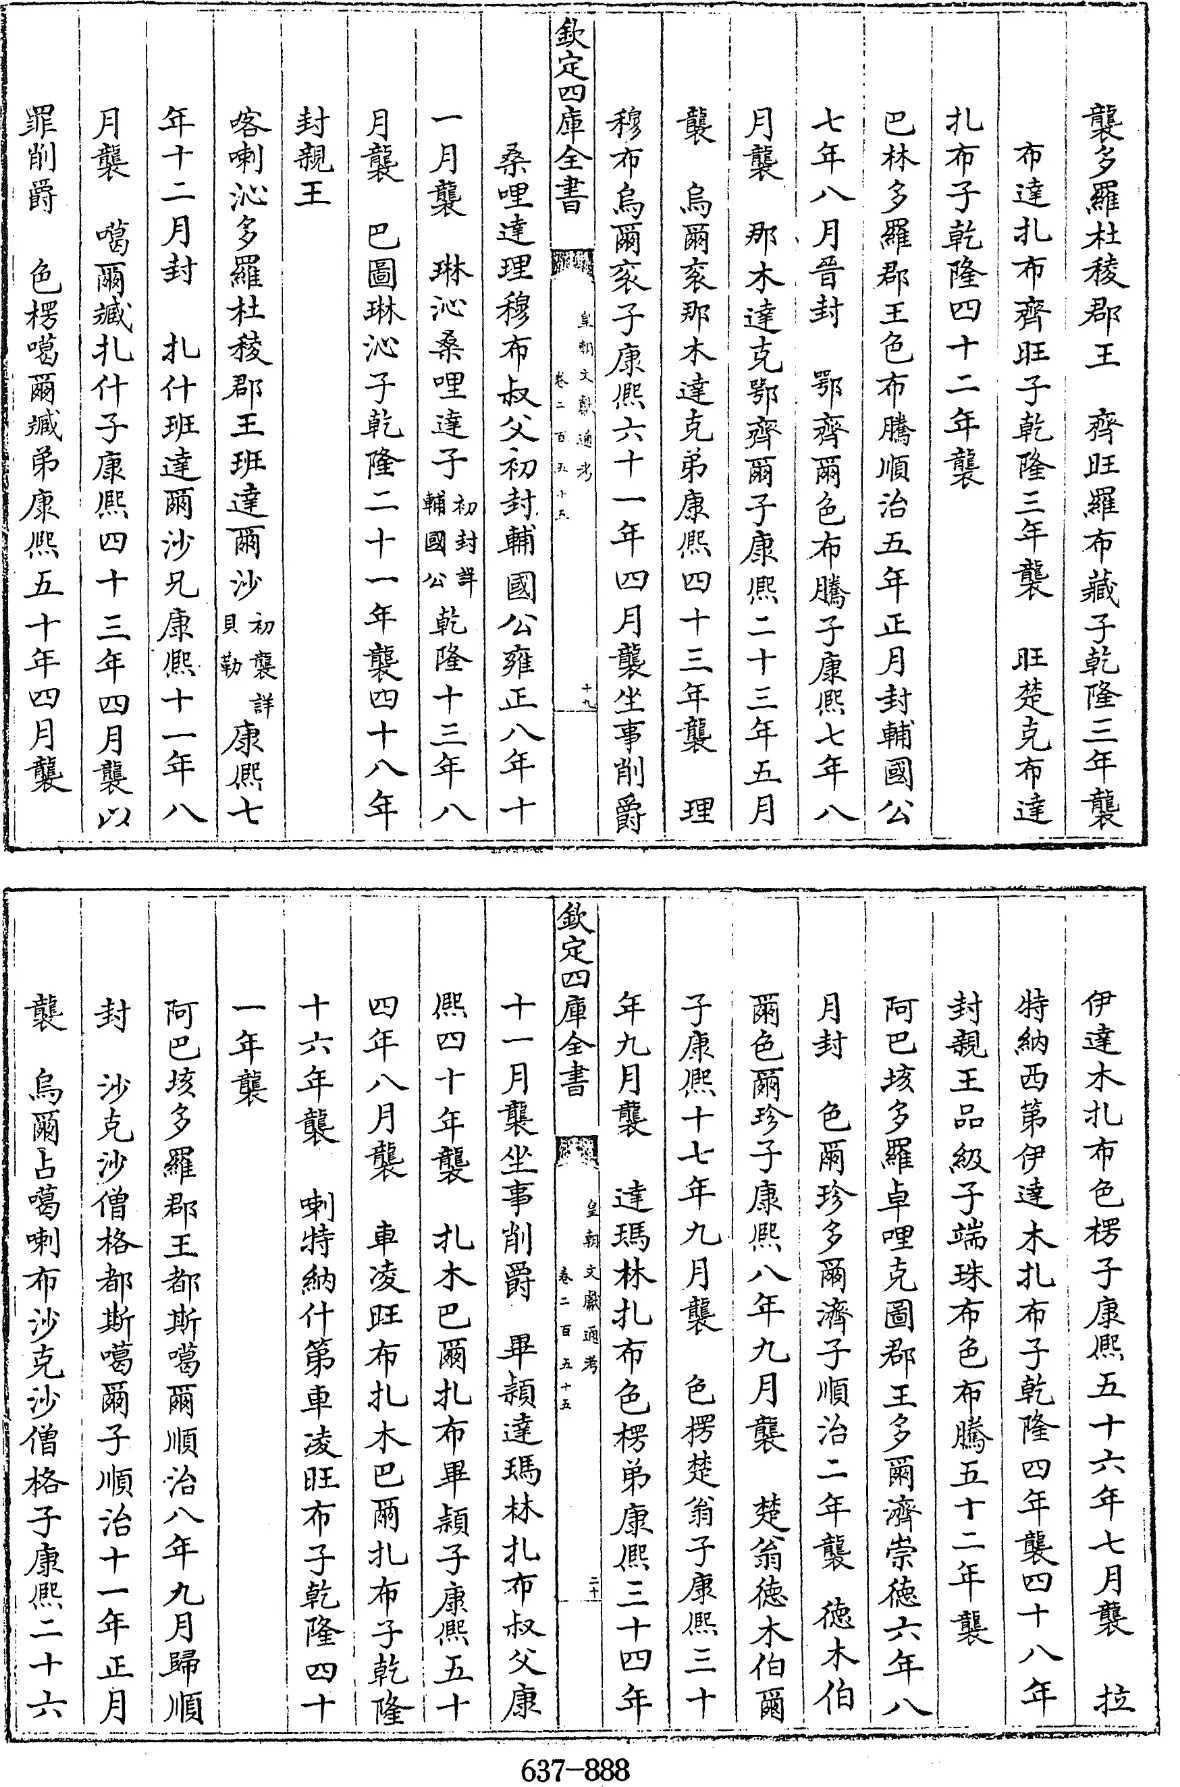 襲多羅杜稜郡王　齊旺羅布藏子乾隆三年襲
布達扎布齊旺子乾隆三年襲　旺楚克布達
扎布子乾隆四十二年襲
巴林多羅郡王色布騰順治五年正月封輔國公
七年八月晉封　鄂齊爾色布騰子康熙七年八
月襲　那木達克鄂齊爾子康熙二十三年五月
襲　烏爾衮那木達克弟康熙四十三年襲　理
穆布烏爾衮子康熙六十一年四月襲坐事削爵
欽定四庫全書　皇朝文獻通考　卷二百五十五　十九
桑哩達理穆布叔父初封輔國公雍正八年十
一月襲　琳沁桑哩達子初封詳輔國公乾隆十三年八
月襲　巴圖琳沁子乾隆二十一年襲四十八年
封親王
喀喇沁多羅杜稜郡王班達爾沙初襲詳貝勒康熙七
年十二月封　扎什班達爾沙兄康熙十一年八
月襲　噶爾臧扎什子康熙四十三年四月襲以
罪削爵　色楞噶爾臧弟康熙五十年四月襲
伊達木扎布色楞子康熙五十六年七月襲　拉
特納西第伊達木扎布子乾隆四年襲四十八年
封親王品級子端珠布色布騰五十二年襲
阿巴垓多羅卓哩克圖郡王多爾濟崇德六年八
月封　色爾珍多爾濟子順治二年襲　德木伯
爾色爾珍子康熙八年九月襲　楚翁德木伯爾
子康熙十七年九月襲　色楞楚翁子康熙三十
年九月襲　達瑪林扎布色楞弟康熙三十四年
欽定四庫全書　皇朝文獻通考　卷二百五十五　二十
十一月襲坐事削爵　畢穎達瑪林扎布叔父康
熙四十年襲　扎木巴爾扎布畢穎子康熙五十
四年八月襲　車凌旺布扎木巴爾扎布子乾隆
十六年襲　喇特納什第車凌旺布子乾隆四十
一年襲
阿巴垓多羅郡王都斯噶爾順治八年九月歸順
封　沙克沙僧格都斯噶爾子順治十一年正月
襲　烏爾占噶喇布沙克沙僧格子康熙二十六
637-888